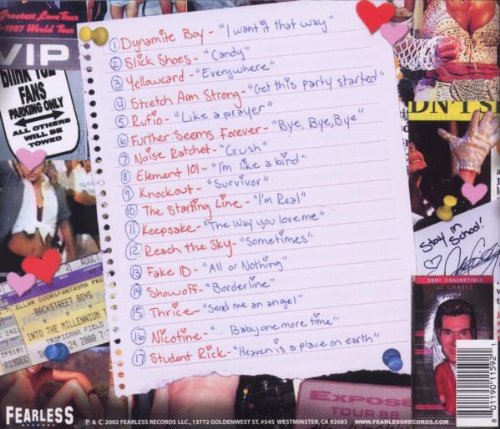 Greatest Love Tour
1987 World Tour
VIP
FANS
PARKING ONLY
ALL OTHERS
WILL BE
TOWED
① Dynamite Boy - "I want it that way"
② Slick Shoes - "Candy"
③ Yellowcard - "Everywhere"
④ Stretch Arm Strong - "Get this party started"
⑤ Rufio - "Like a prayer"
⑥ Further Seems Forever - "Bye, Bye, Bye"
⑦ Noise Ratchet - "Crush"
⑧ Element 101 - "I'm like a bird"
⑨ Knockout - "Survivor"
⑩ The Starting Line - "I'm Real"
⑪ Keepsake - "The Way you love me"
⑫ Reach the Sky - "Sometimes"
⑬ Fake ID - "All or Nothing"
⑭ Showoff - "Borderline"
⑮ Thrice - "Send me an angel"
⑯ Nicotine - "...Baby one more time"
⑰ Student Rick - "Heaven is a place on earth"
Stay in
School!
2001 COLLECTIBLE
BACKSTREET BOYS
INTO THE MILLENNIUM
TROPICANA FIELD
EXPOSE
TOUR 88
8 01190 11592 1
FEARLESS
RECORDS
P & C 2002 FEARLESS RECORDS LLC., 13772 GOLDENWEST ST. #545 WESTMINSTER, CA 92683 WWW.FEARLESSRECORDS.COM